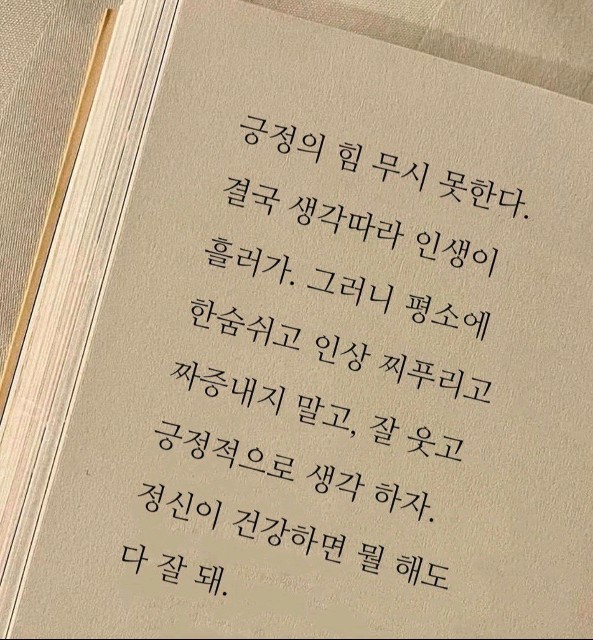 긍정의 힘 무시 못한다.
결국 생각따라 인생이
흘러가. 그러니 평소에
한숨쉬고 인상 찌푸리고
짜증내지 말고, 잘 웃고
긍정적으로 생각 하자.
정신이 건강하면 뭘 해도
다 잘 돼.